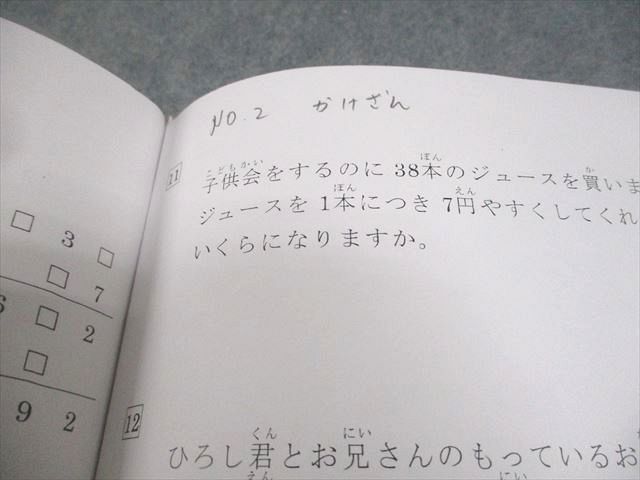 NO.2 かけざん
11 子供会をするのに 38本のジュースを買いま
ジュースを 1本につき 7円やすくしてくれ
いくらになりますか。
□ 3 □
□ 7
6 □ 2
□
9 2
12
ひろし君とお兄さんのもっているお